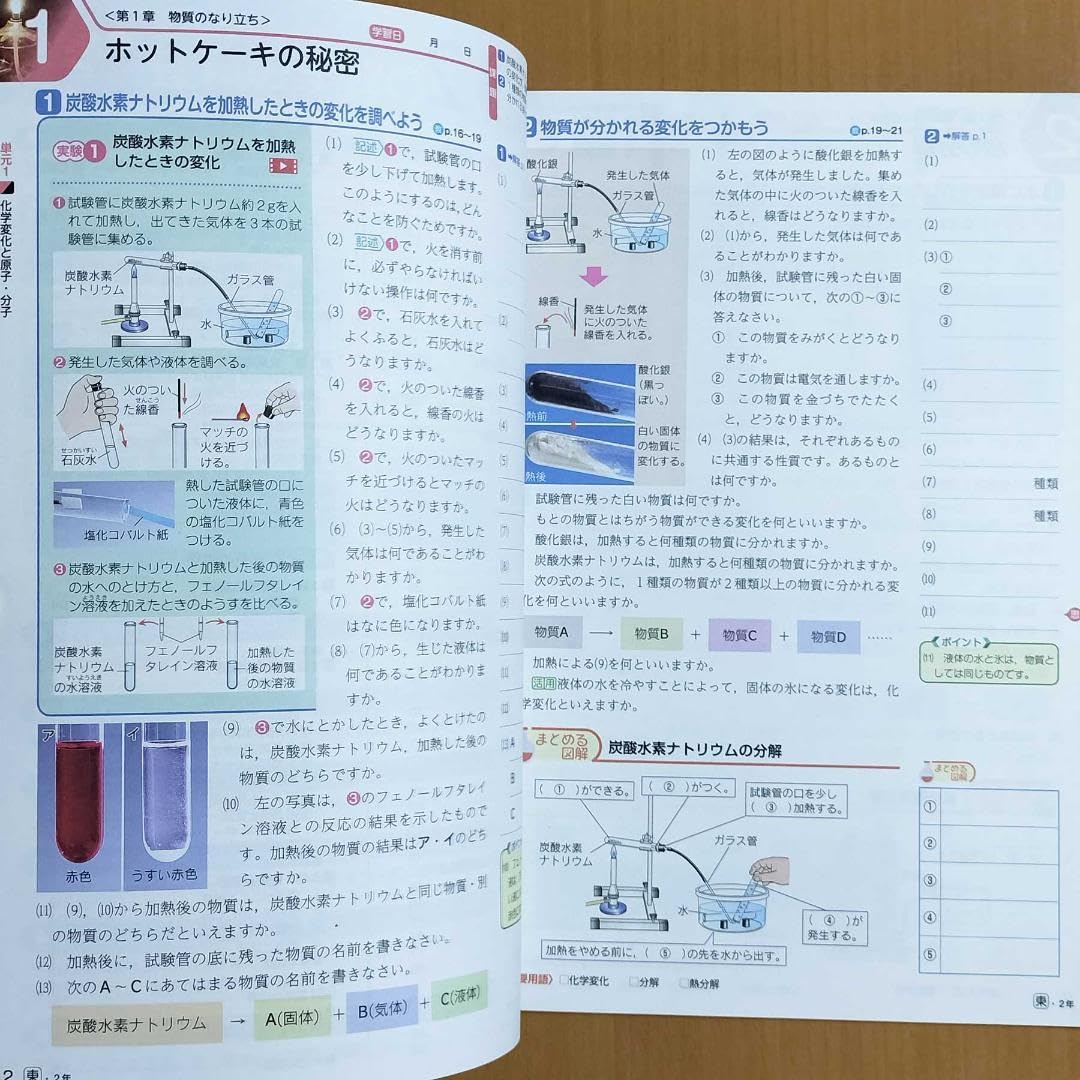 1
<第1章 物質のなり立ち>
ホットケーキの秘密
学習日 月 日
単元1 化学変化と原子・分子
1 炭酸水素ナトリウムを加熱したときの変化を調べよう
p.16~19
実験1 炭酸水素ナトリウムを加熱
したときの変化
❶試験管に炭酸水素ナトリウム約2gを入
れて加熱し,出てきた気体を3本の試
験管に集める。
炭酸水素
ナトリウム
ガラス管
水
❷発生した気体や液体を調べる。
火のつい
た線香
せんこう
せっかいすい
石灰水
マッチの
火を近づ
ける。
熱した試験管の口に
ついた液体に,青色
の塩化コバルト紙を
つける。
塩化コバルト紙
❸炭酸水素ナトリウムと加熱した後の物質
の水へのとけ方と,フェノールフタレイ
ン溶液を加えたときのようすを比べる。
ようえき
炭酸水素
ナトリウム
すいようえき
の水溶液
フェノールフ
タレイン溶液
加熱した
後の物質
の水溶液
(1) 記述 ❶で,試験管の口
を少し下げて加熱します。
このようにするのは,どん
なことを防ぐためですか。
(2) 記述 ❶で,火を消す前
に,必ずやらなければい
けない操作は何ですか。
(3) ❷で,石灰水を入れて
よくふると,石灰水はど
うなりますか。
(4) ❷で,火のついた線香
を入れると,線香の火は
どうなりますか。
(5) ❷で,火のついたマッ
チを近づけるとマッチの
火はどうなりますか。
(6) (3)~(5)から,発生した
気体は何であることがわ
かりますか。
(7) ❷で,塩化コバルト紙
はなに色になりますか。
(8) (7)から,生じた液体は
何であることがわかりま
すか。
ア
イ
赤色
うすい赤色
(9) ❸で水にとかしたとき,よくとけたの
は,炭酸水素ナトリウム,加熱した後の
物質のどちらですか。
(10) 左の写真は,❸のフェノールフタレイ
ン溶液との反応の結果を示したもので
す。加熱後の物質の結果はア・イのどち
らですか。
(11) (9),(10)から加熱後の物質は,炭酸水素ナトリウムと同じ物質・別
の物質のどちらだといえますか。
(12) 加熱後に,試験管の底に残った物質の名前を書きなさい。
(13) 次のA~Cにあてはまる物質の名前を書きなさい。
炭酸水素ナトリウム → A(固体) + B(気体) + C(液体)
2 東・2年
課題
2 物質が分かれる変化をつかもう
p.19~21
酸化銀
発生した気体
ガラス管
水
線香
発生した気体
に火のついた
線香を入れる。
酸化銀
(黒っ
ぽい。)
熱前
白い固体
の物質に
変化する。
熱後
(1) 左の図のように酸化銀を加熱す
ると,気体が発生しました。集め
た気体の中に火のついた線香を入
れると,線香はどうなりますか。
(2) (1)から,発生した気体は何であ
ることがわかりますか。
(3) 加熱後,試験管に残った白い固
体の物質について,次の①~③に
答えなさい。
① この物質をみがくとどうなり
ますか。
② この物質は電気を通しますか。
③ この物質を金づちでたたく
と,どうなりますか。
(4) (3)の結果は,それぞれあるもの
に共通する性質です。あるものと
は何ですか。
試験管に残った白い物質は何ですか。
もとの物質とはちがう物質ができる変化を何といいますか。
酸化銀は,加熱すると何種類の物質に分かれますか。
炭酸水素ナトリウムは,加熱すると何種類の物質に分かれますか。
次の式のように,1種類の物質が2種類以上の物質に分かれる変
化を何といいますか。
物質A → 物質B + 物質C + 物質D ……
加熱による(9)を何といいますか。
活用 液体の水を冷やすことによって,固体の氷になる変化は,化
学変化といえますか。
まとめる図解 炭酸水素ナトリウムの分解
( ① )ができる。
( ② )がつく。
試験管の口を少し
( ③ )加熱する。
炭酸水素
ナトリウム
ガラス管
水
( ④ )が
発生する。
加熱をやめる前に,( ⑤ )の先を水から出す。
要用語〉 □化学変化 □分解 □熱分解
2 ➡解答 p.1
(1)
(2)
(3)①
②
③
(4)
(5)
(6)
(7) 種類
(8) 種類
(9)
(10)
(11)
ポイント
(11) 液体の水と氷は,物質と
しては同じものです。
まとめる図解
①
②
③
④
⑤
東・2年